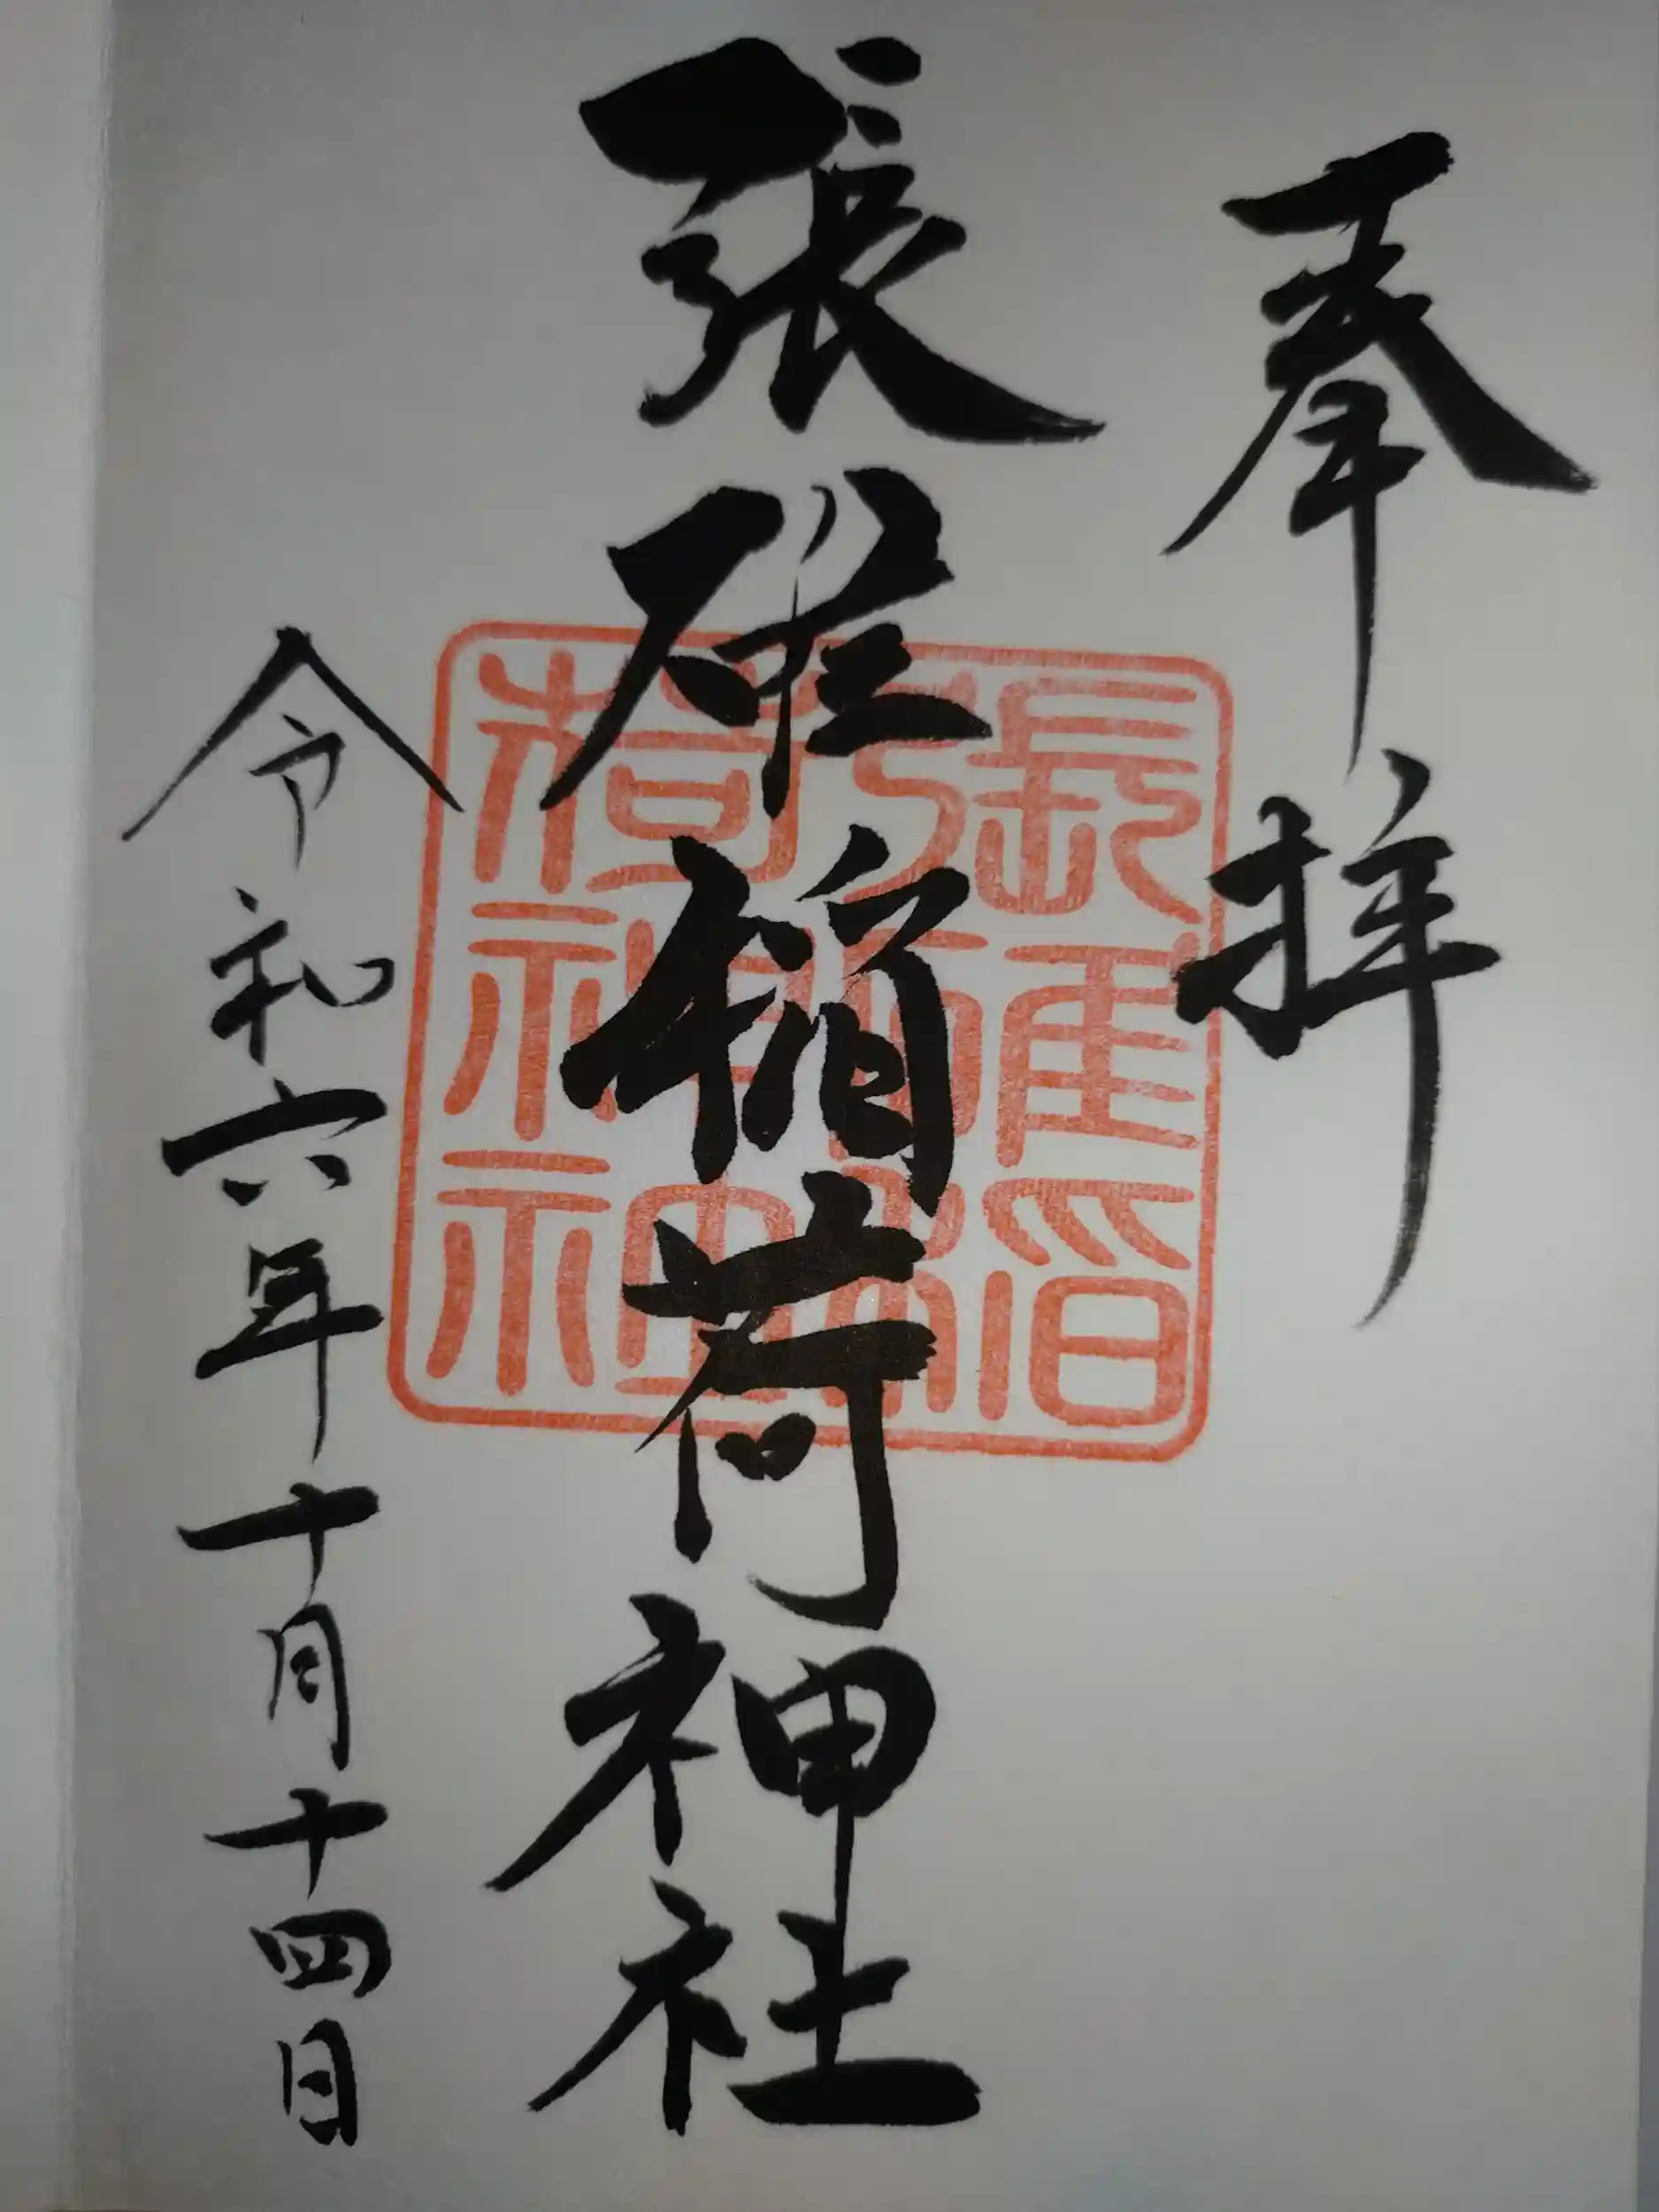 奉拝
張碓稲荷神社
張碓稲
荷神社
令和六年十月十四日